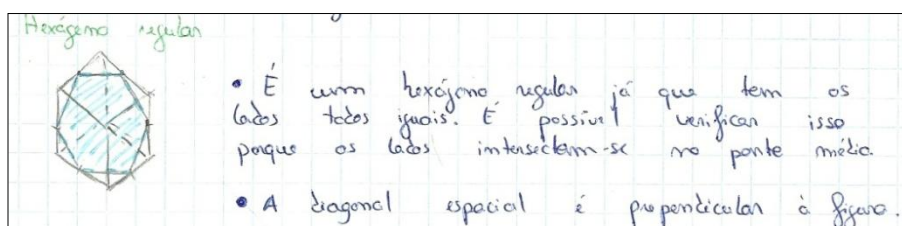 Hexágono regular
• É um hexágono regular já que tem os
lados todos iguais. É possível verificar isso
porque os lados intersectam-se no ponto médio.
• A diagonal espacial é perpendicular à figura.